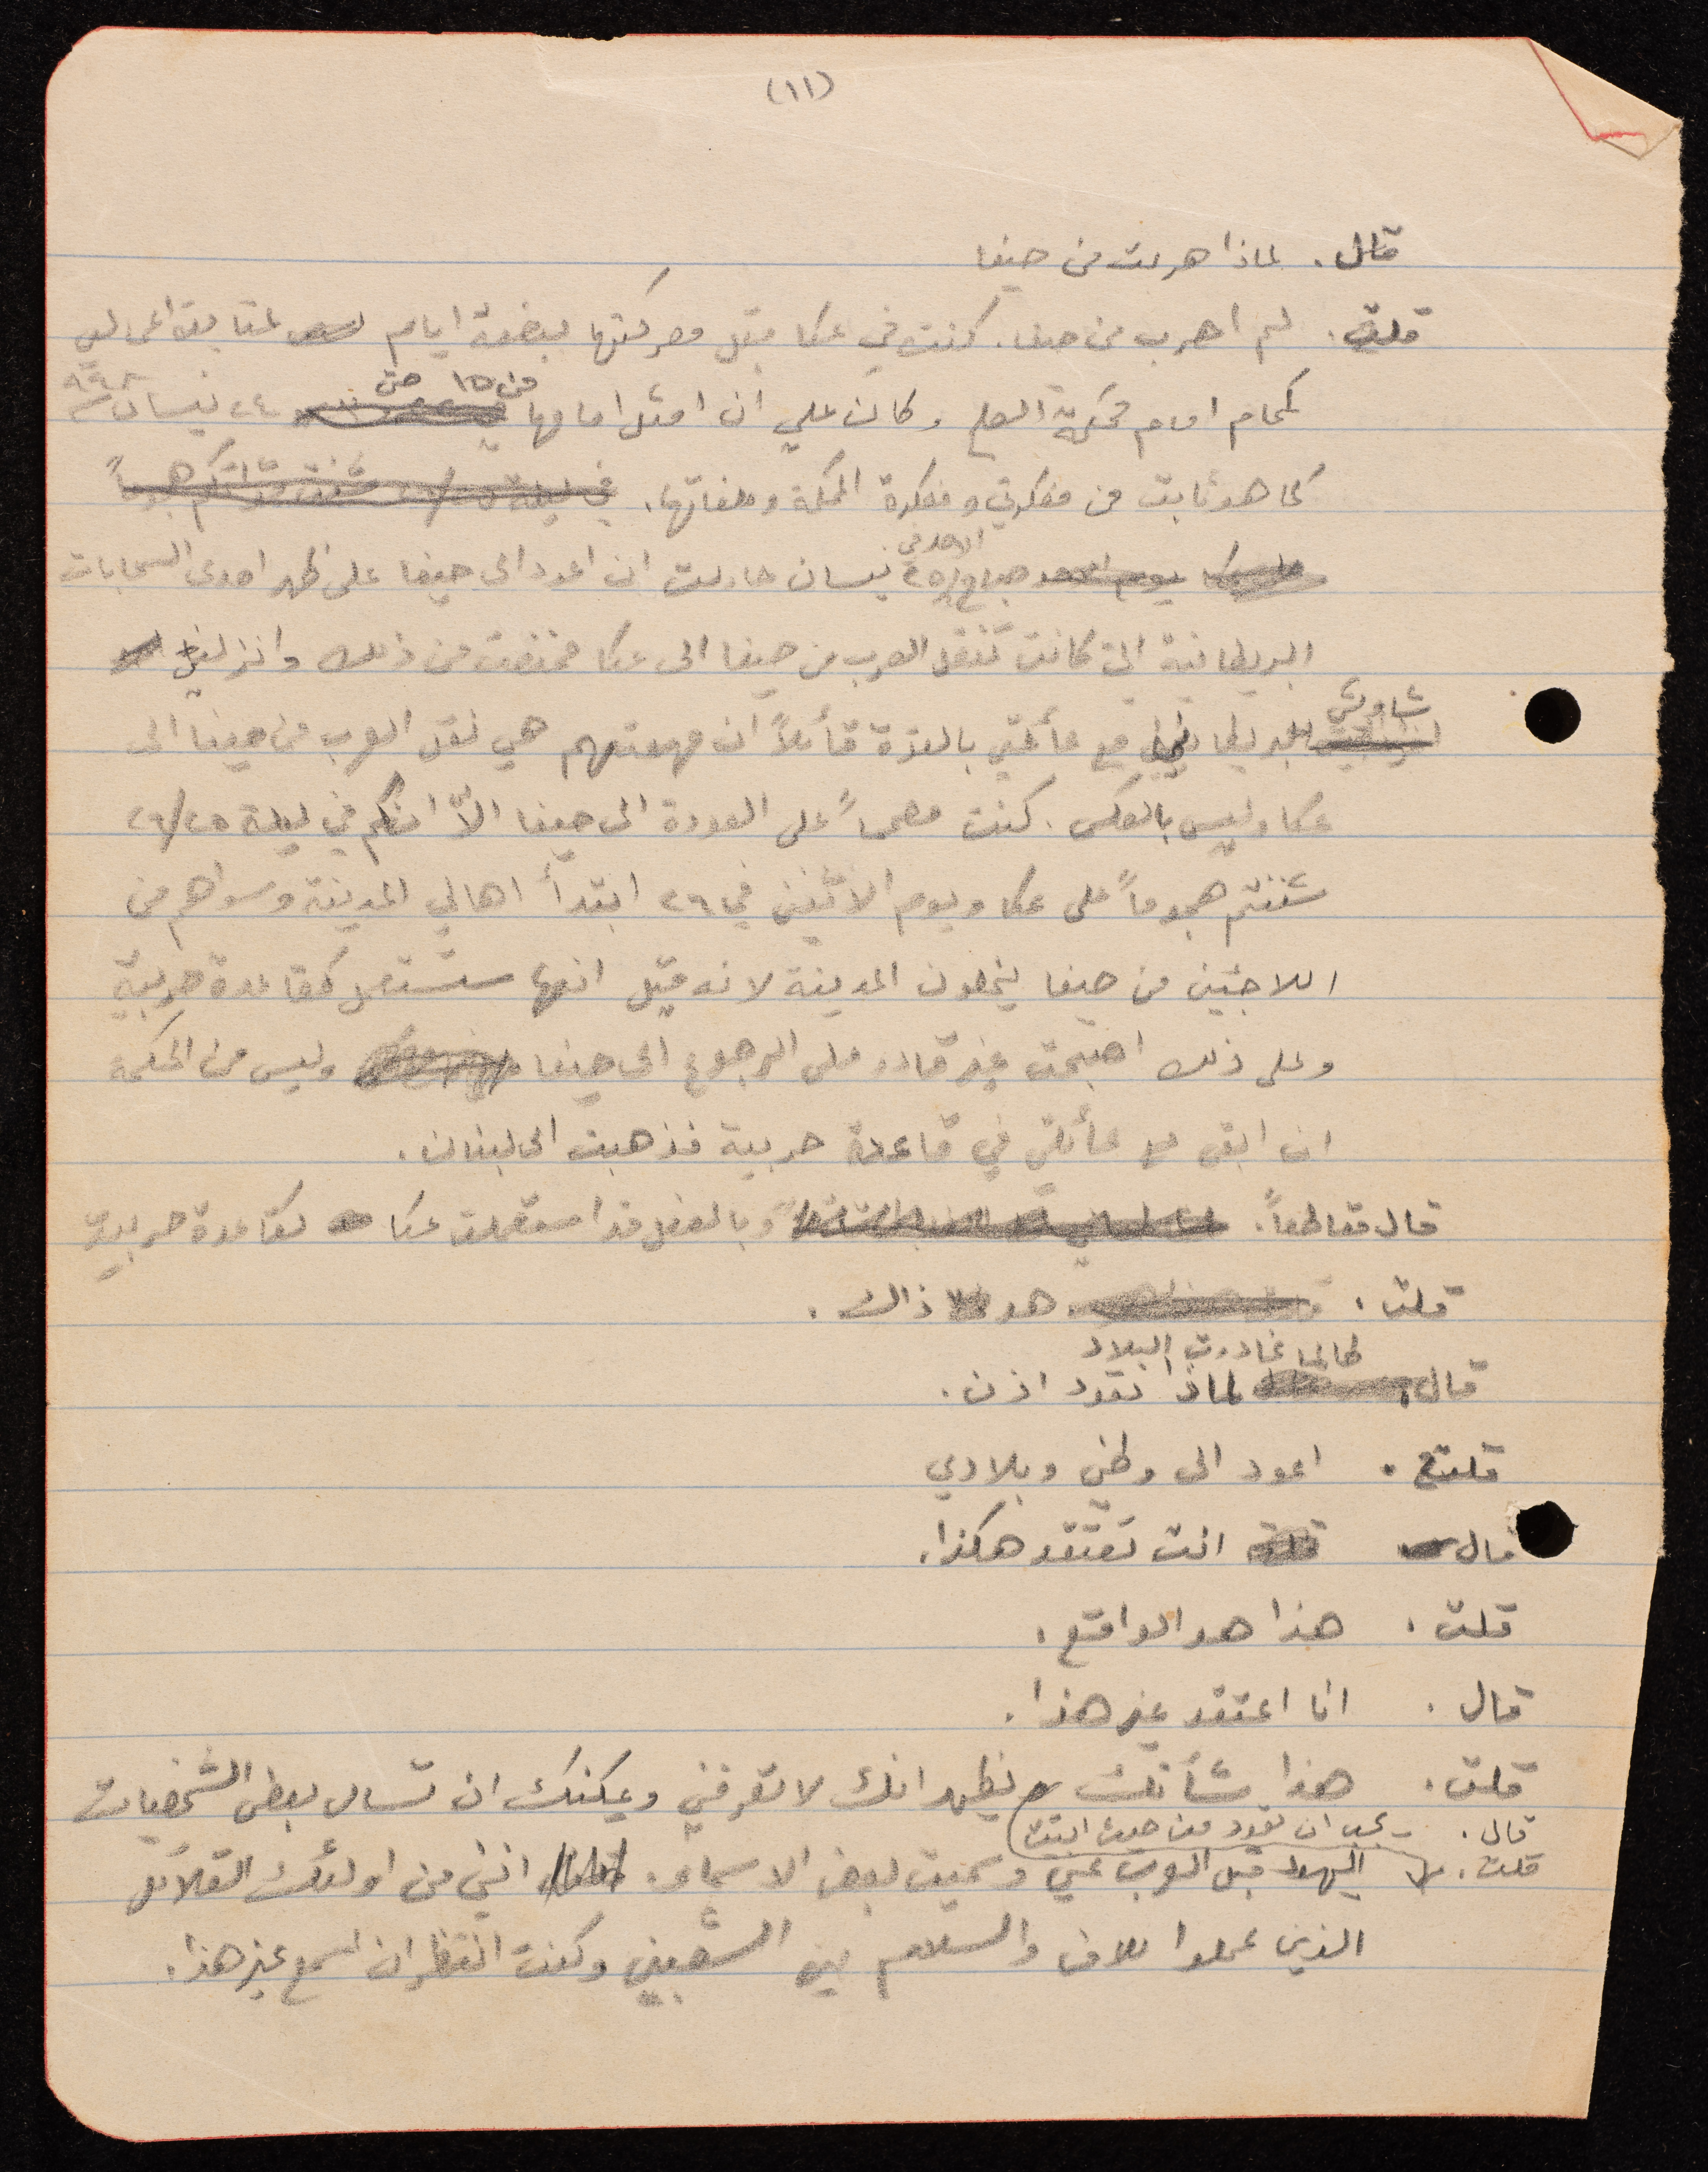 (١١)
قال. لماذا هربت من حيفا
قلت. لم اهرب من حيفا. كنت في عكا قبل معركتها ببضعة ايام لمتابعة اعمالي
كمحام امام محكمة الصلح وكان علي ان امثل امامها من ١٥ حتى ٢٤ نيسان
كما هو ثابت من مفكرتي ومفكرة المحكمة وملفاتها. في ليلة شننتم هجوماً
يوم الاحد صباح الاحد في ٢٥ نيسان حاولت ان اعود الى حيفا على ظهر احدى السحابات
البريطانية التي كانت تنقل العرب من حيفا الى عكا فمنعت من ذلك وانزلني
شاويش بريطاني مع عائلتي بالقوة قائلاً ان مهمتهم هي نقل العرب من حيفا الى
عكا وليس بالعكس. كنت مصمماً على العودة الى حيفا الاّ انكم في ليلة ٢٥/٢٦
شننتم هجوماً على عكا ويوم الاثنين في ٢٦ ابتدأ اهالي المدينة وسواهم من
اللاجئين من حيفا يخلون المدينة لانه قيل انها ستستعمل كقاعدة حربية
وعلى ذلك اصبحت غير قادر على الرجوع الى حيفا وليس من الحكمة
ان ابقى مع عائلتي في قاعدة حربية فذهبت الى لبنان.
قال مقاطعاً. وبالفعل قد استعملت عكا كقاعدة حربية
قلت. هو ذاك.
طالما غادرت البلاد
قال. لماذا تعود اذن.
قلت. اعود الى وطني وبلادي
قال انت تعتقد هكذا.
قلت. هذا هو الواقع.
قال. انا اعتقد غير هذا.
قلت. هذا شأنك يظهر انك لا تعرفني ويمكنك ان تسأل بعض الشخصيات
قال. - يجب ان تعود من حيث اتيت
قلت. اليهود قبل العرب عني وسميت بعض الاسماء. انني من اولئك القلائل
الذين عملوا للامن والسلام بين الشعبين وكنت انتظر ان اسمع غير هذا.